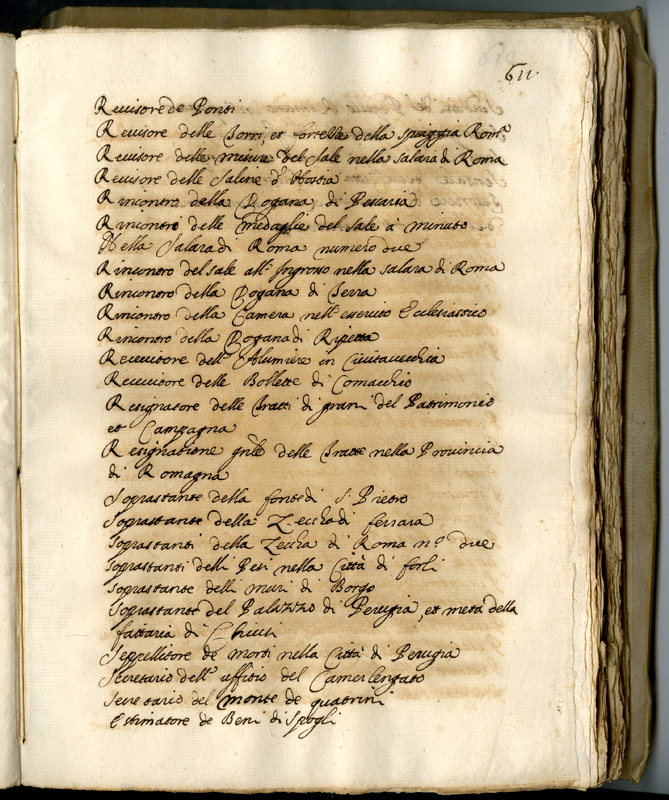 611
Reuisore de Ponti
Reuisore delle Torri, et fortezze della spiaggia Rom.ª
Reuisore delle misure del Sale nella Salara di Roma
Reuisore delle Saline d'Hostia
Rincontro della Dogana di Pescaria
Rincontro delle medaglie del sale à minuto
Nella Salara di Roma numero due
Rincontro del sale all' Ingrosso nella salara di Roma
Rincontro della Dogana di Terra
Rincontro della Camera nell' essercito Ecclesiastico
Rincontro della Dogana di Ripetta
Receuitore dell' Alumiere in Ciuitauecchia
Receuitore delle Bollette di Comacchio
Resignatore delle Tratti di grani del Patrimonio
et Campagna
Resignatione gn̄le delle Tratte nella Prouincia
di Romagna
Soprastante della fonte di S. Pietro
Soprastante della Zeccha di ferrara
Soprastanti della Zeccha di Roma n.º due
Soprastanti delli Pesi nella Città di forlì
Soprastante delli muri di Borgo
Soprastante del Palazzo di Perugia, et metà della
fattaria di Chiuci
Seppellitore de morti nella Città di Perugia
Secretario dell' uffitio del Camerlengato
Secretario del monte de quatrini
Estimatore de Beni di Spogli